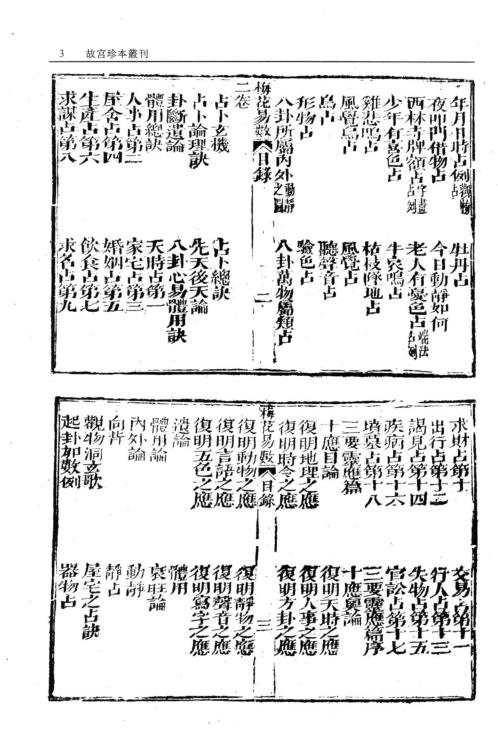 3 故宮珍本叢刊
年月日時占例觀梅占 牡丹占
夜叩門借物占 今日動靜如何
西林寺牌額占字畫占例 老人有憂色占端法占例
少年有喜色占 牛哀鳴占
雞悲鳴占 枯枝墜地占
風覺鳥占 風覺占
鳥占 聽聲音占
形物占 驗色占
八卦所屬內外動靜 八卦萬物屬類占
梅花易數 目錄 二
二卷
占卜玄機 占卜總訣
占卜論理訣 先天後天論
卦斷遺論 八卦心易體用訣
體用總訣 天時占第一
人事占第二 家宅占第三
屋舍占第四 婚姻占第五
生產占第六 飲食占第七
求謀占第八 求名占第九
求財占第十 交易占第十一
出行占第十二 行人占第十三
謁見占第十四 失物占第十五
疾病占第十六 官訟占第十七
墳墓占第十八 三要靈應篇序
三要靈應篇 十應奧論
十應目論 復明天時之應
復明地理之應 復明人事之應
復明時令之應 復明方卦之應
梅花易數 目錄 三
復明動物之應 復明靜物之應
復明言語之應 復明聲音之應
復明五色之應 復明寫字之應
遺論 體用
體用論 衰旺論
內外論 動靜
向背 靜占
觀物洞玄歌 屋宅之占訣
起卦加數例 器物占